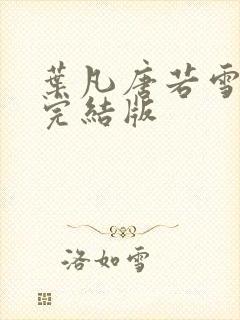 葉凡唐若雪
完結版
洛如雪